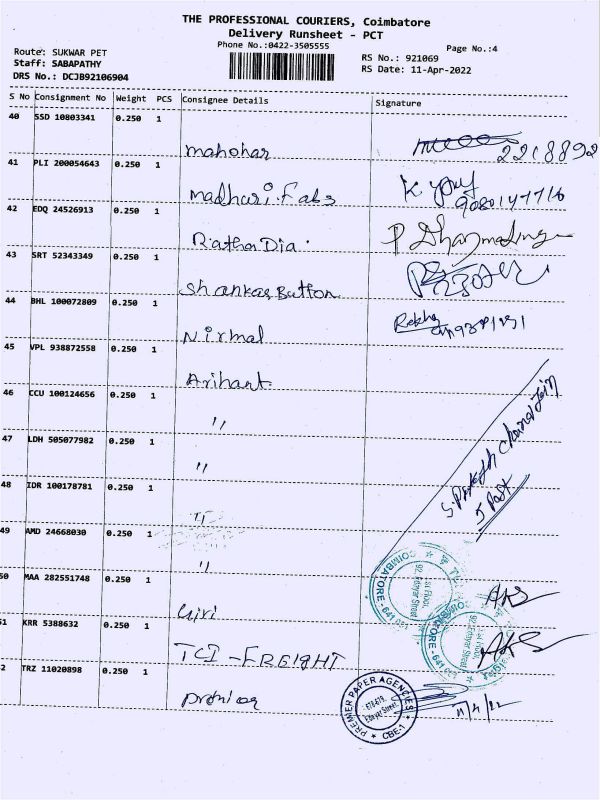 THE PROFESSIONAL COURIERS, Coimbatore
Delivery Runsheet - PCT
Phone No.:0422-3505555
Page No.:4
Route: SUKWAR PET
Staff: SABAPATHY
DRS No.: DCJB92106904
RS No.: 921069
RS Date: 11-Apr-2022
S No Consignment No Weight PCS Consignee Details Signature
40 SSD 10803341 0.250 1
mahohar 2218892
41 PLI 200054643 0.250 1
madhuri Fabs K.
42 EDQ 24526913 0.250 1
Rathan Dia. P
43 SRT 52343349 0.250 1
Shankar Button
44 BHL 100072809 0.250 1
Nirmal Rekha
45 VPL 938872558 0.250 1
Arihant
46 CCU 100124656 0.250 1
"
47 LDH 505077982 0.250 1
"
48 IDR 100178781 0.250 1
"
49 AMD 24668030 0.250 1
"
50 MAA 282551748 0.250 1
Giri AKS
51 KRR 5388632 0.250 1
TCI - FREIGHT AKS
52 TRZ 11020898 0.250 1
premier 11/4/22
5 Past
COIMBATORE - 641
1st Floor,
92, Edayar Street
PREMIER PAPER AGENCIES
Edayar Street
CBE-1